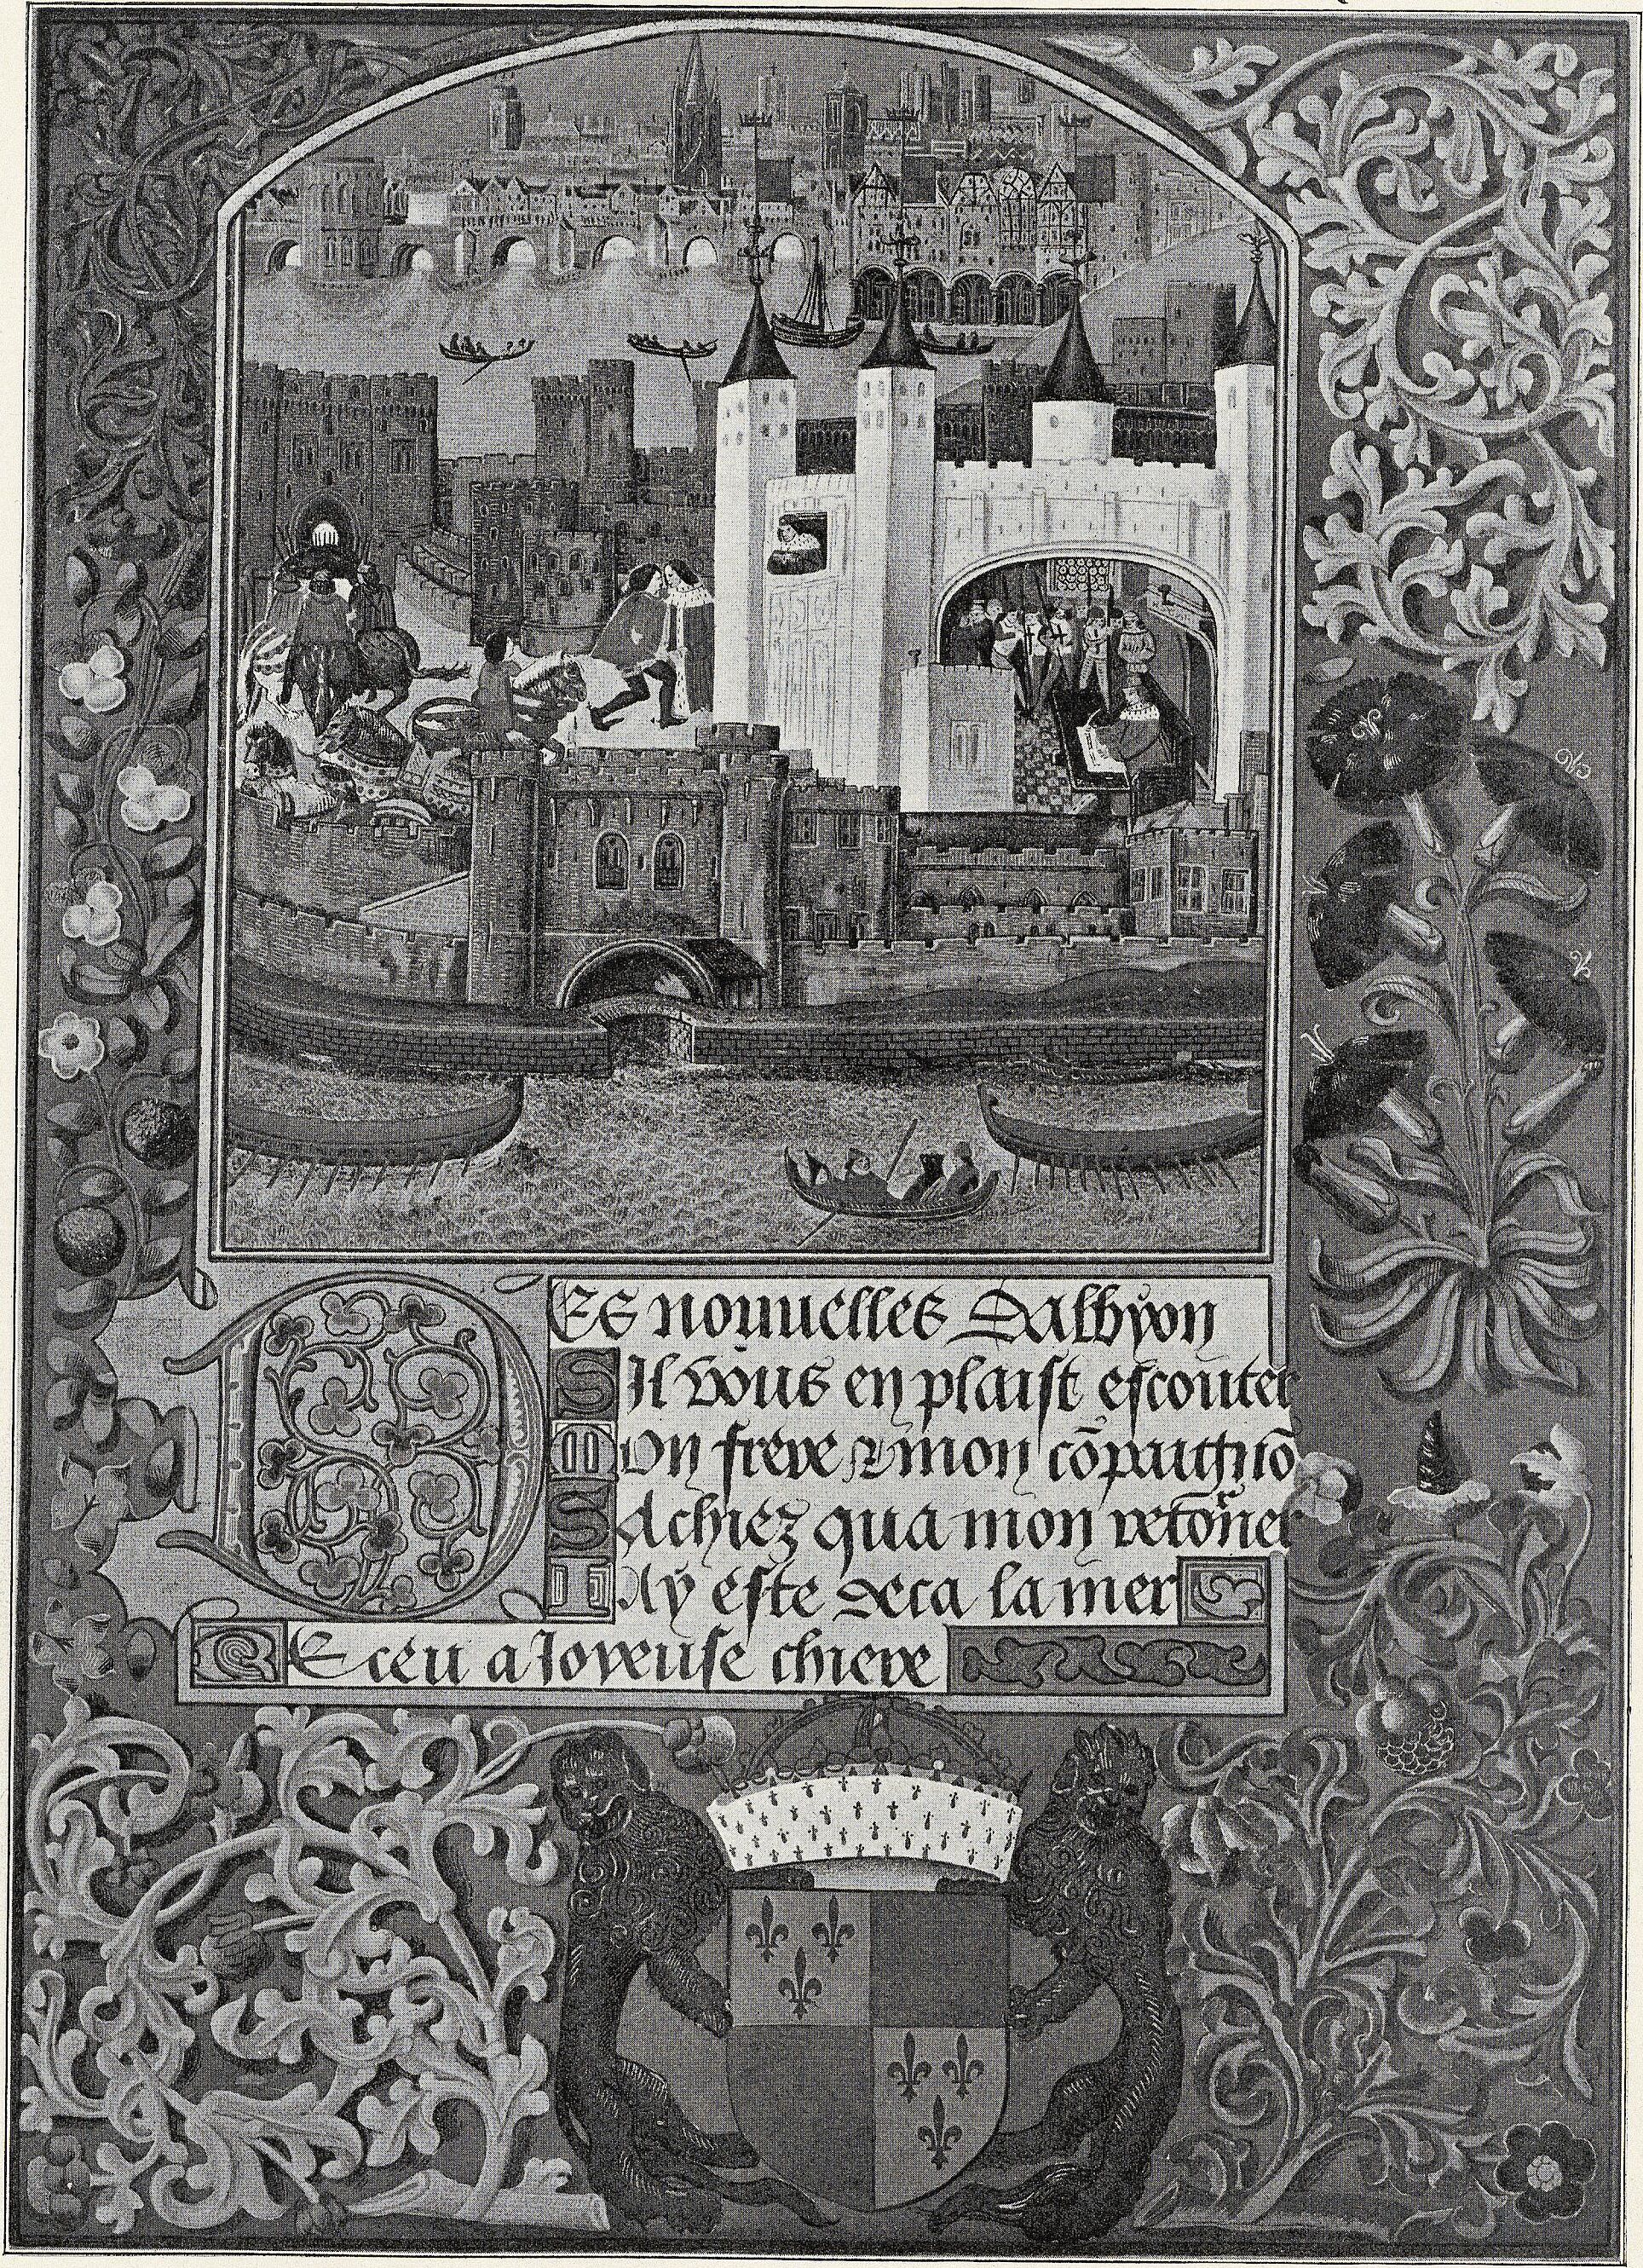 DES nouuelles Dalbyon
SIl vous en plaist escouter
MOn frere & mon cōpaignō
SAchiez qua mon retōner
IAy este deca la mer
REceu a Joyeuse chiere